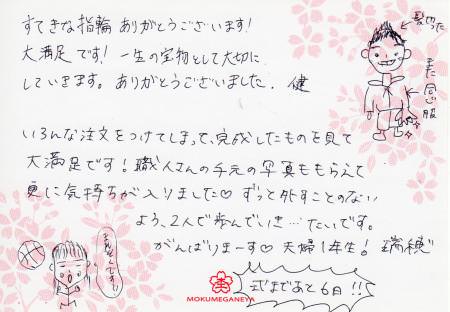 すてきな指輪 ありがとうございます!
大満足です! 一生の宝物として大切に
していきます。ありがとうございました. 健
髪切った
また同じ服
いろんな注文をつけてしまって、完成したものを見て
大満足です!職人さんの手元の写真ももらえて
更に気持ちが入りました♡ ずっと外すことのない
よう、2人で歩んでいき…たいです。
がんばりまーす♡ 夫婦1年生! 瑞穂
式まであと6日!!
MOKUMEGANEYA